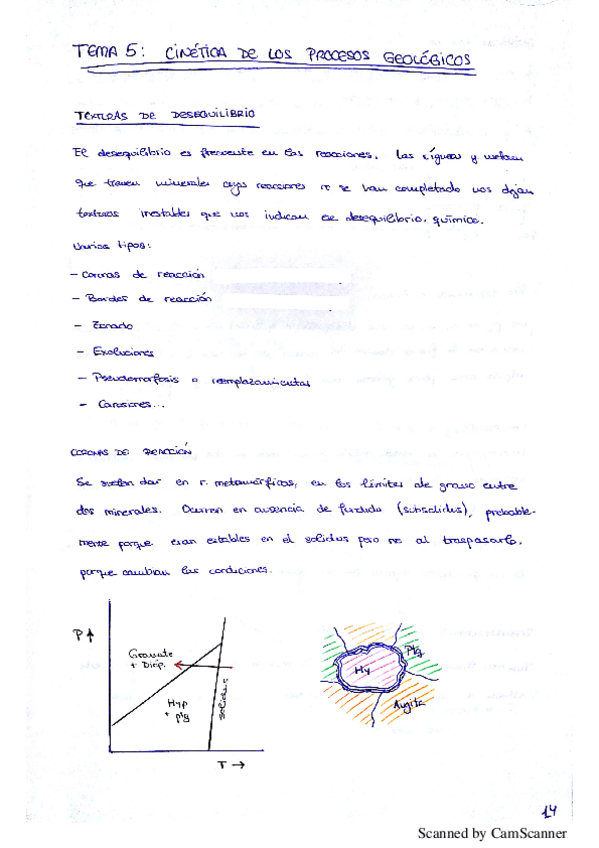 TEMA 5: CINÉTICA DE LOS PROCESOS GEOLÓGICOS
TEXTURAS DE DESEQUILIBRIO
El desequilibrio es frecuente en las reacciones. Las ígneas y metam
que traen minerales cuyas reacciones n se han completado nos dejan
texturas inestables que nos indican ese desequilibrio químico.
Varios tipos:
- Coronas de reacción
- Bordes de reacción
- Zonado
- Exoluciones
- Pseudomorfosis o reemplazamientos
- Corrosiones...
CORONAS DE REACCIÓN
Se suelen dar en r. metamórficas, en los límites de grano entre
dos minerales. Ocurren en ausencia de fundido (subsolidus), probable-
mente porque eran estables en el solidus pero no al traspasarlo,
porque cambian las condiciones.
P↑
Granate
+ Diop.
Hyp
+ plg
solidus
T →
Plg
Hy
Augita
14
Scanned by CamScanner